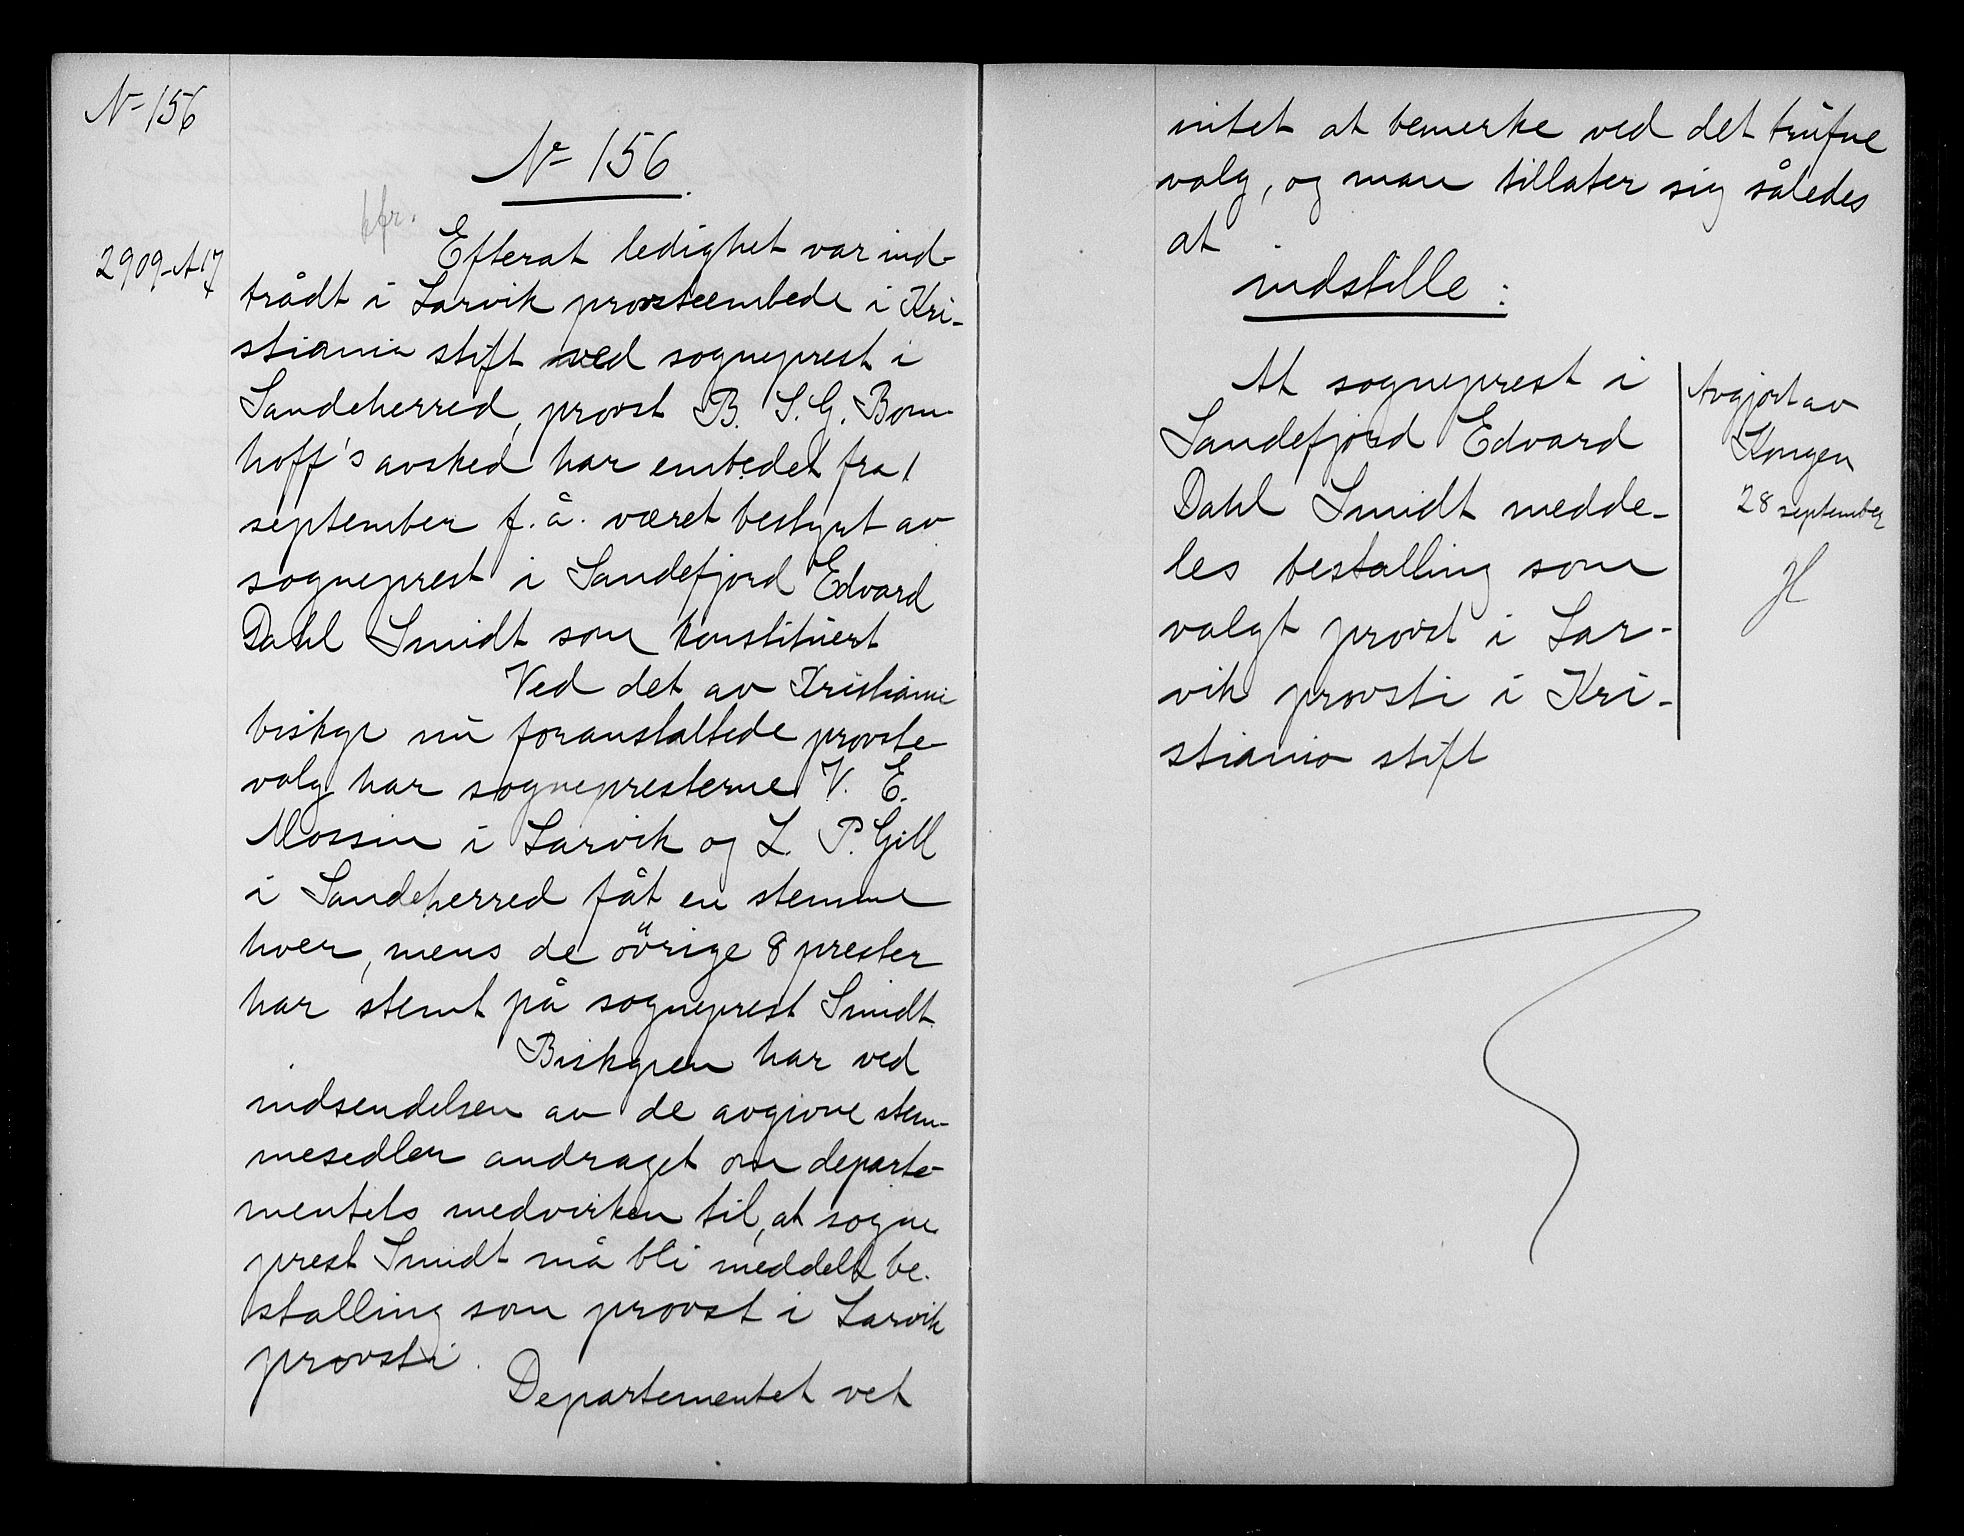 No 156
No 156.
kfr.
2909-A17
Efterat ledighet var ind-
trådt i Larvik prosteembede i Kri-
stiania stift ved sogneprest i
Sandeherred, provst B. S. G. Bom-
hoff's avsked har embedet fra 1
september f. å. været bestyrt av
sogneprest i Sandefjord Edvard
Dahl Smidt som konstituert
Ved det av Kristiania
biskop nu foranstaltede provste-
valg har sogneprestene V. E.
Mossin i Larvik og L. P. Gill
i Sandeherred fåt en stemme
hver, mens de övrige 8 prester
har stemt på sogneprest Smidt.
Biskopen har ved
indsendelsen av de avgivne stem-
mesedler andraget om departe-
mentets medvirken til, at sogne
prest Smidt må bli meddelt be-
stalling som provst i Larvik
provsti.
Departementet vet
intet at bemerke ved det trufne
valg, og man tillater sig således
at
indstille:
At sogneprest i
Sandefjord Edvard
Dahl Smidt medde-
les bestalling som
valgt provst i Lar-
vik provsti i Kri-
stiania stift
Avgjort av
Kongen
28 september
H